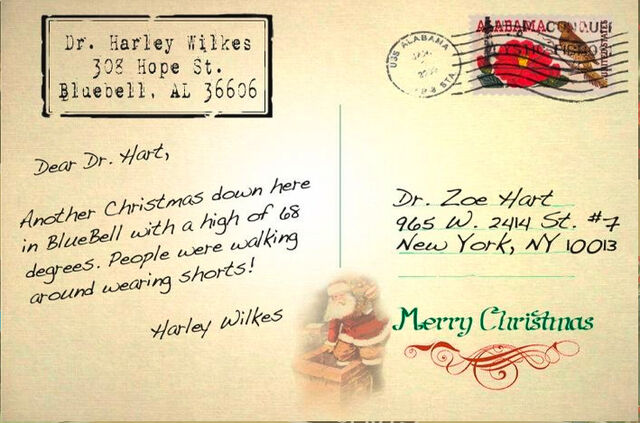 Dr. Harley Wilkes
308 Hope St.
Bluebell, AL 36606
USS ALABAMA
ALABAMA
UNITED STATES
Dear Dr. Hart,
Another Christmas down here
in BlueBell with a high of 68
degrees. People were walking
around wearing shorts!
Harley Wilkes
Dr. Zoe Hart
965 W. 24th St. #7
New York, NY 10013
Merry Christmas